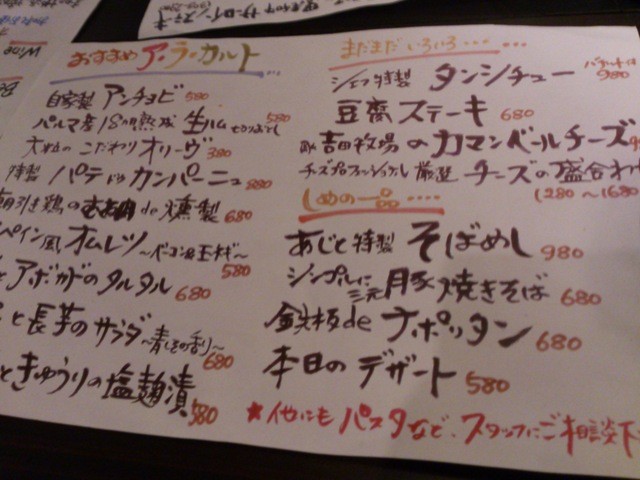 おすすめ ア・ラ・カルト
自家製 アンチョビ 580
パルマ産18カ月熟成 生ハム 切りおとし 580
大粒の こだわり オリーヴ 380
特製 パテ・ド・カンパーニュ 880
朝引き鶏の むね肉 de 燻製 680
ペイン風 オムレツ 〜ベーコン&玉ネギ〜 580
と アボガドの タルタル 680
と 長芋の サラダ 〜青じその香り〜 680
ときゅうりの塩麹漬 580
まだまだ いろいろ・・・・
シェフ特製 タンシチュー 980
豆腐ステーキ 680
吉田牧場の カマンベールチーズ
チーズプロフェッショナル厳選 チーズの盛合わ
1280〜1680
しめの一品・・・・
あじと特製 そばめし 980
シンプルに 三元豚 焼きそば 680
鉄板de ナポリタン 680
本日の デザート 580
★他にも パスタなど、スタッフにご相談下
Wine